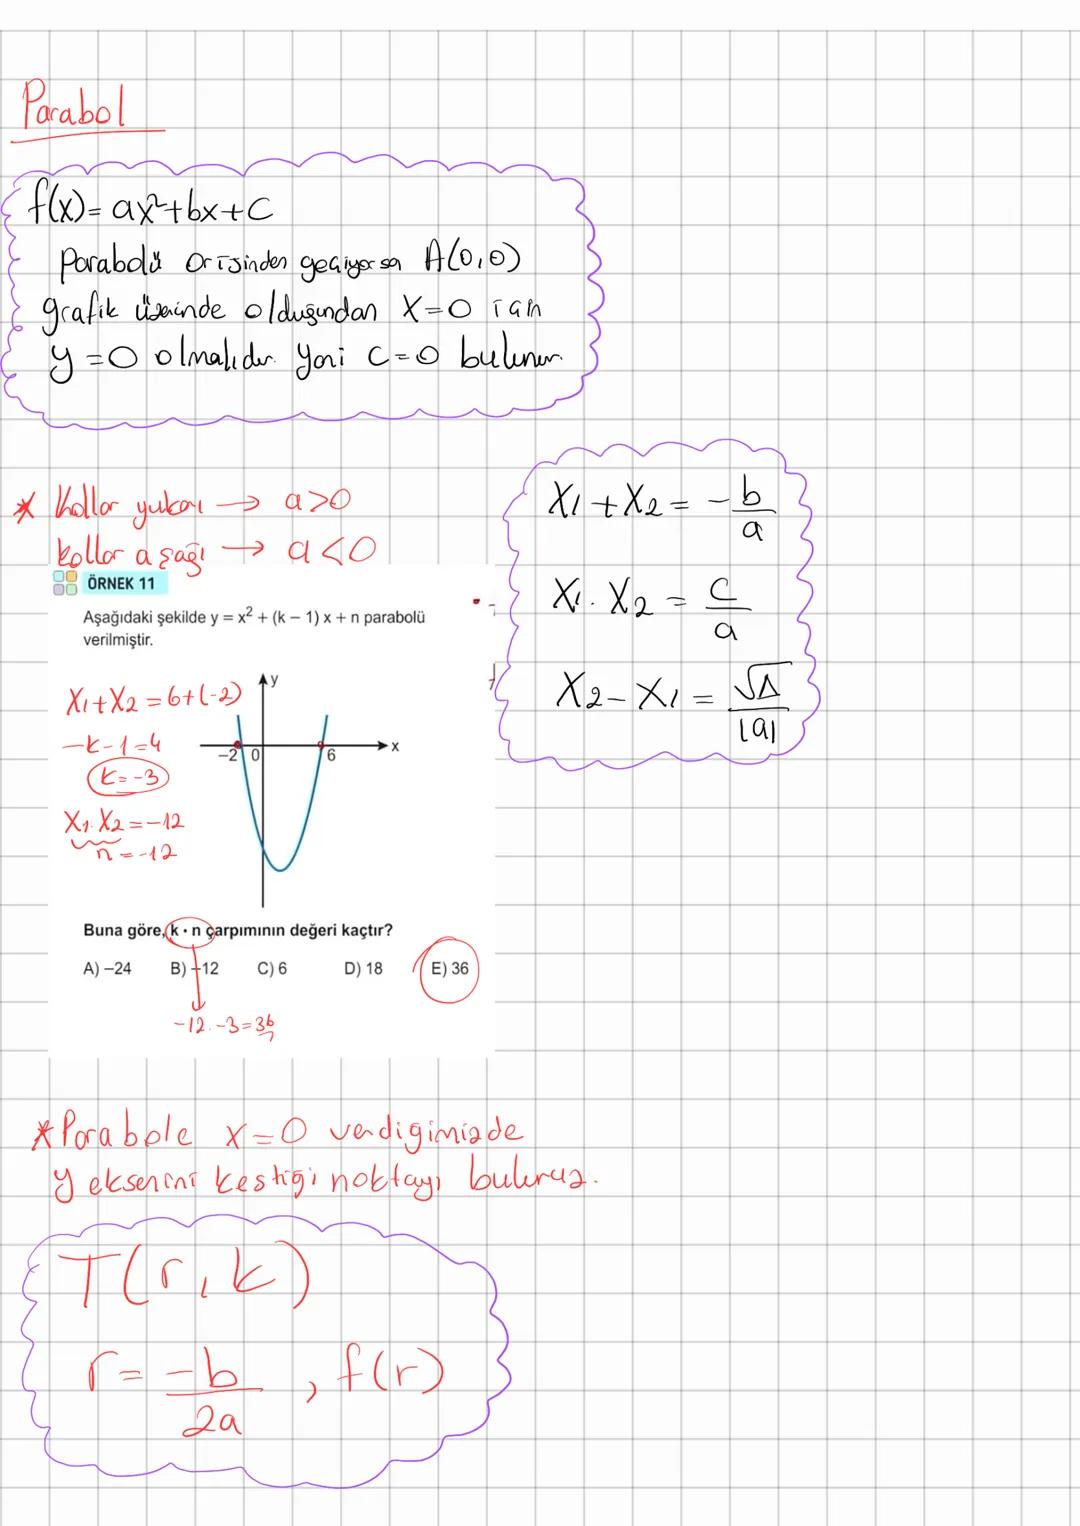 Parabol
f(x)= ax²+bx+c
Parabolü orijinden geçiyorsa A(0,0)
grafik üzerinde olduğundan x=0 için
y=0 olmalıdır. Yani c=0 bulunur.
* Kollar yukarı → a>0
kollar aşağı → a<0
X₁+X₂ = -b/a
X₁.X₂ = c/a
X₂-X₁ = √Δ/|a|
ÖRNEK 11
Aşağıdaki şekilde y = x² + (k – 1) x + n parabolü
verilmiştir.
X₁+X₂ =6+(-2)
-k-1=4
k=-3
X₁.X₂=-12
n=-12
y
x
-2 0 6
Buna göre, k · n çarpımının değeri kaçtır?
A) –24 B) –12 C) 6 D) 18 E) 36
-12.-3=36
* Parabole x=0 verdiğimizde
y eksenini kestiği noktayı buluruz.
T(r,k)
r= -b/2a , f(r)